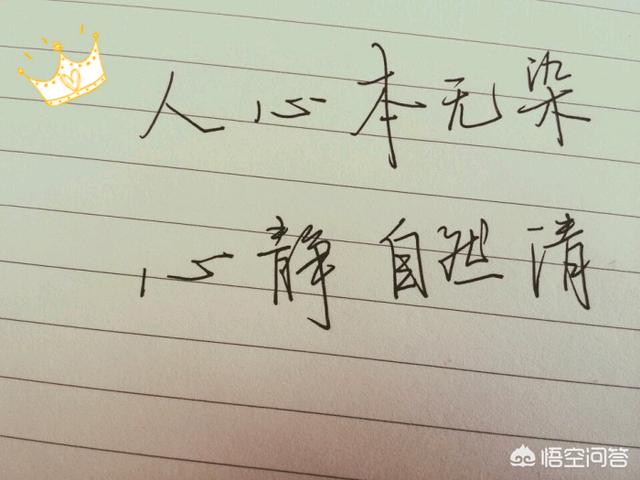 人心本无染
心静自然清
悟空问答